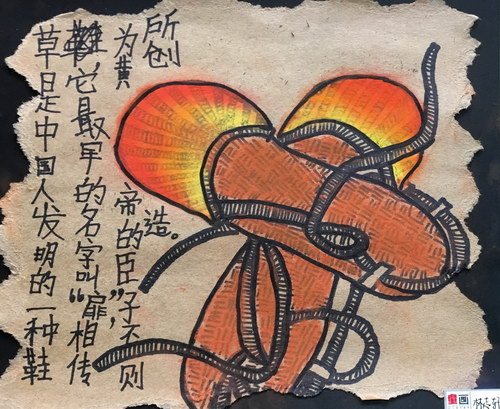 草是中国人发明的一种鞋
,它最早的名字叫“扉”,相传
为黄帝的臣子不则
所创造。
童画